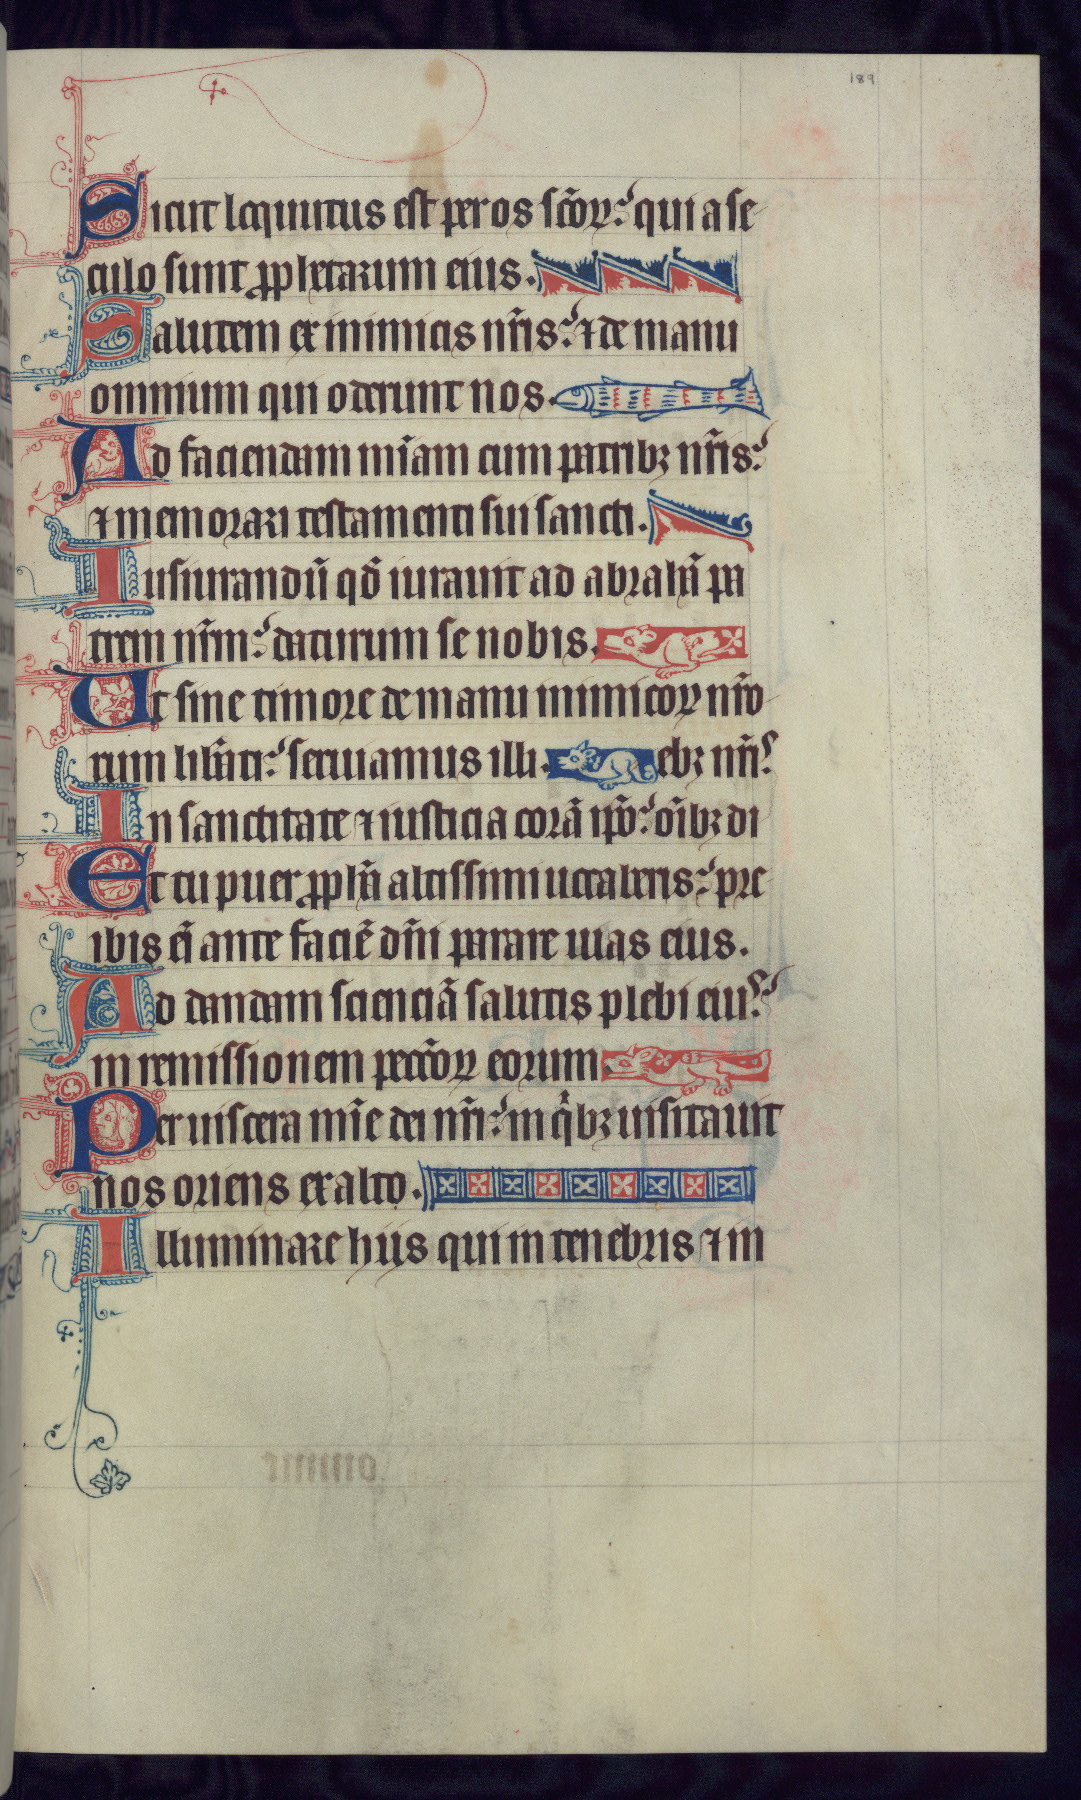 189
Sicut loquutus est per os sc̄oꝝ: qui a se
culo sunt ꝓphetarum eius.
Salutem ex inimicis nr̄is: ⁊ de manu
omnium qui oderunt nos.
Ad faciendam mīam cum patribꝫ nr̄is:
⁊ memorari testamenti sui sancti.
Iusiurandū qđ iurauit ad abrahā pa
trem nr̄m: daturum se nobis.
Ut sine timore de manu inimicoꝝ nr̄o
rum lib̄ati: seruiamus illi. ebꝫ nr̄i:
In sanctitate ⁊ iusticia corā ip̄o: oībꝫ di
Et tu puer ꝓph̄a altissimi uocaberis: pre
ibis ei̅ ante faciē dn̄i parare uias eius.
Ad dandam scienciā salutis plebi eiuˢ:
in remissionem pecc̄oꝝ eorum.
Per uiscera mīe dei nr̄i: in q̄bꝫ uisitauit
nos oriens exalto.
Illuminare hijs qui in tenebris ⁊ in